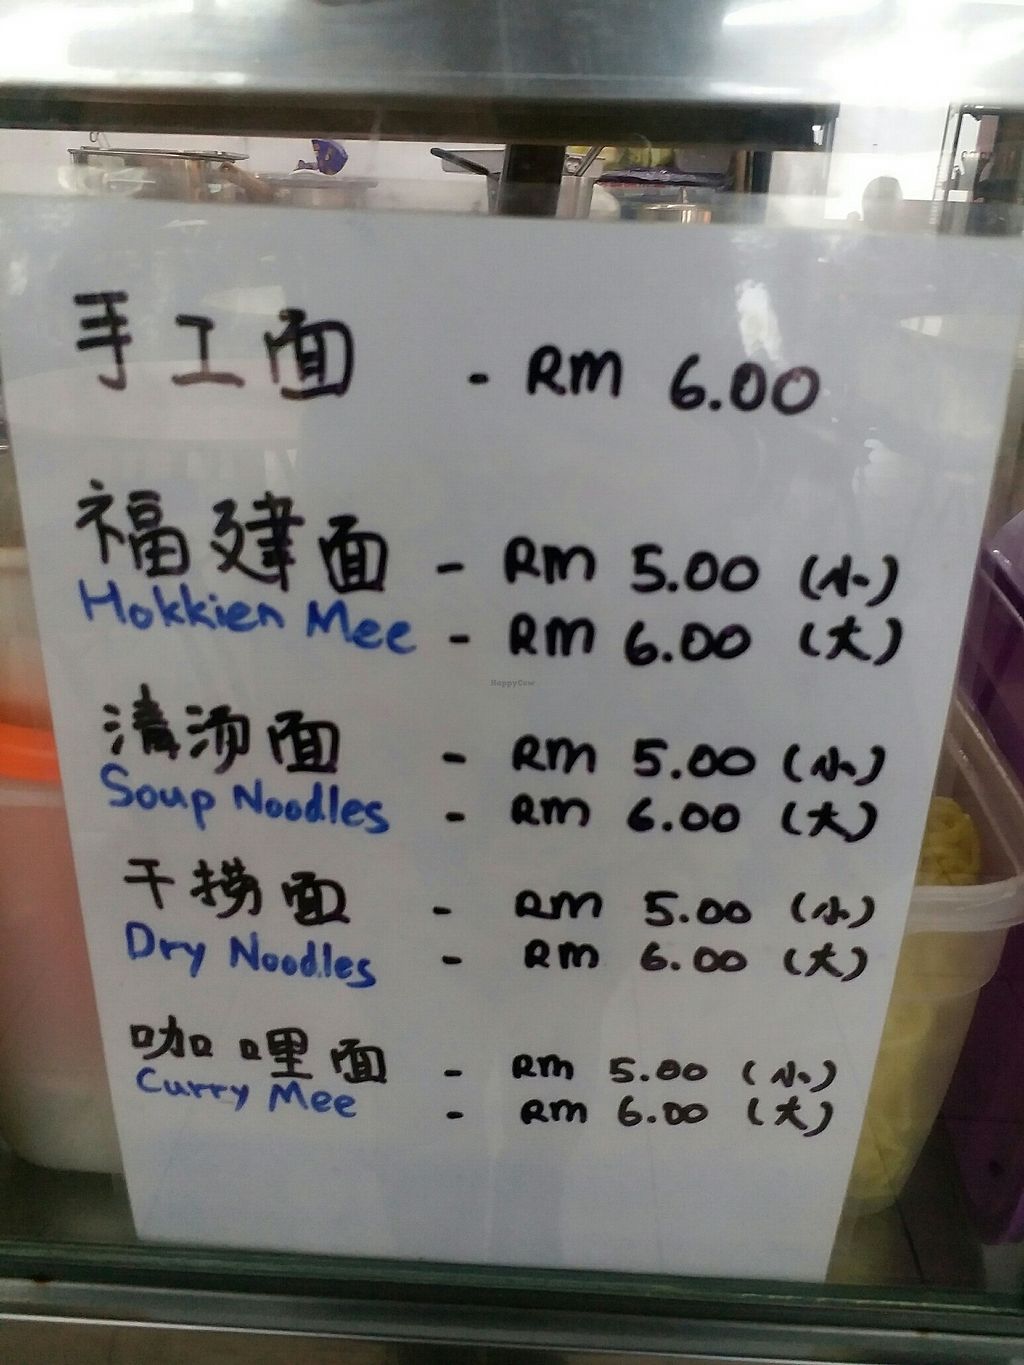 手工面 - RM 6.00
福建面 - RM 5.00 (小)
Hokkien Mee - RM 6.00 (大)
HappyCow
清汤面 - RM 5.00 (小)
Soup Noodles - RM 6.00 (大)
干捞面 - RM 5.00 (小)
Dry Noodles - RM 6.00 (大)
咖哩面 - RM 5.00 (小)
Curry Mee - RM 6.00 (大)